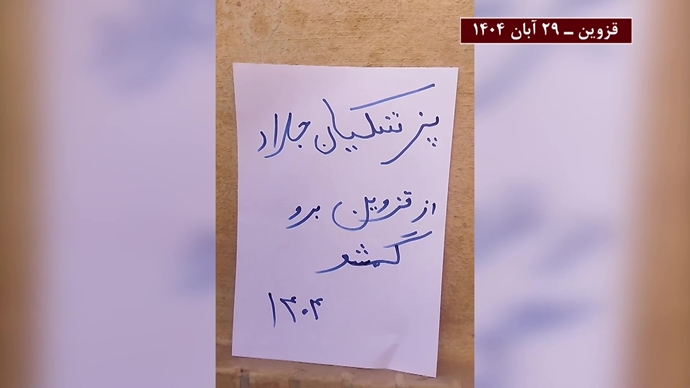 قزوین ــ ۲۹ آبان ۱۴۰۴
پزشکیان جلاد
از قزوین برو
گمشو
۱۴۰۴